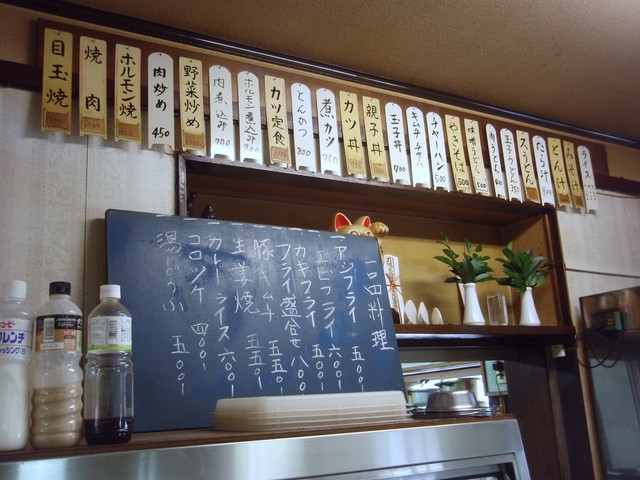 目玉焼
焼肉
ホルモン焼
肉炒め 450
野菜炒め
肉煮込み 700
ホルモン煮込み 700
カツ定食
とんかつ 800
煮カツ 750
カツ丼
親子丼
玉子丼
キムチチャーハン
チャーハン 500
やきそば 500
味噌うどん 500
肉うどん 600
玉子うどん
スうどん
たら汁
とん汁
みそ汁
ライス
一品料理
アジフライ 五〇〇
エビフライ 六〇〇
カキフライ 五〇〇
フライ盛合せ 八〇〇
豚キムチ 五五〇
生姜焼 五五〇
カレーライス 六〇〇
コロッケ 四〇〇
湯どうふ 五〇〇